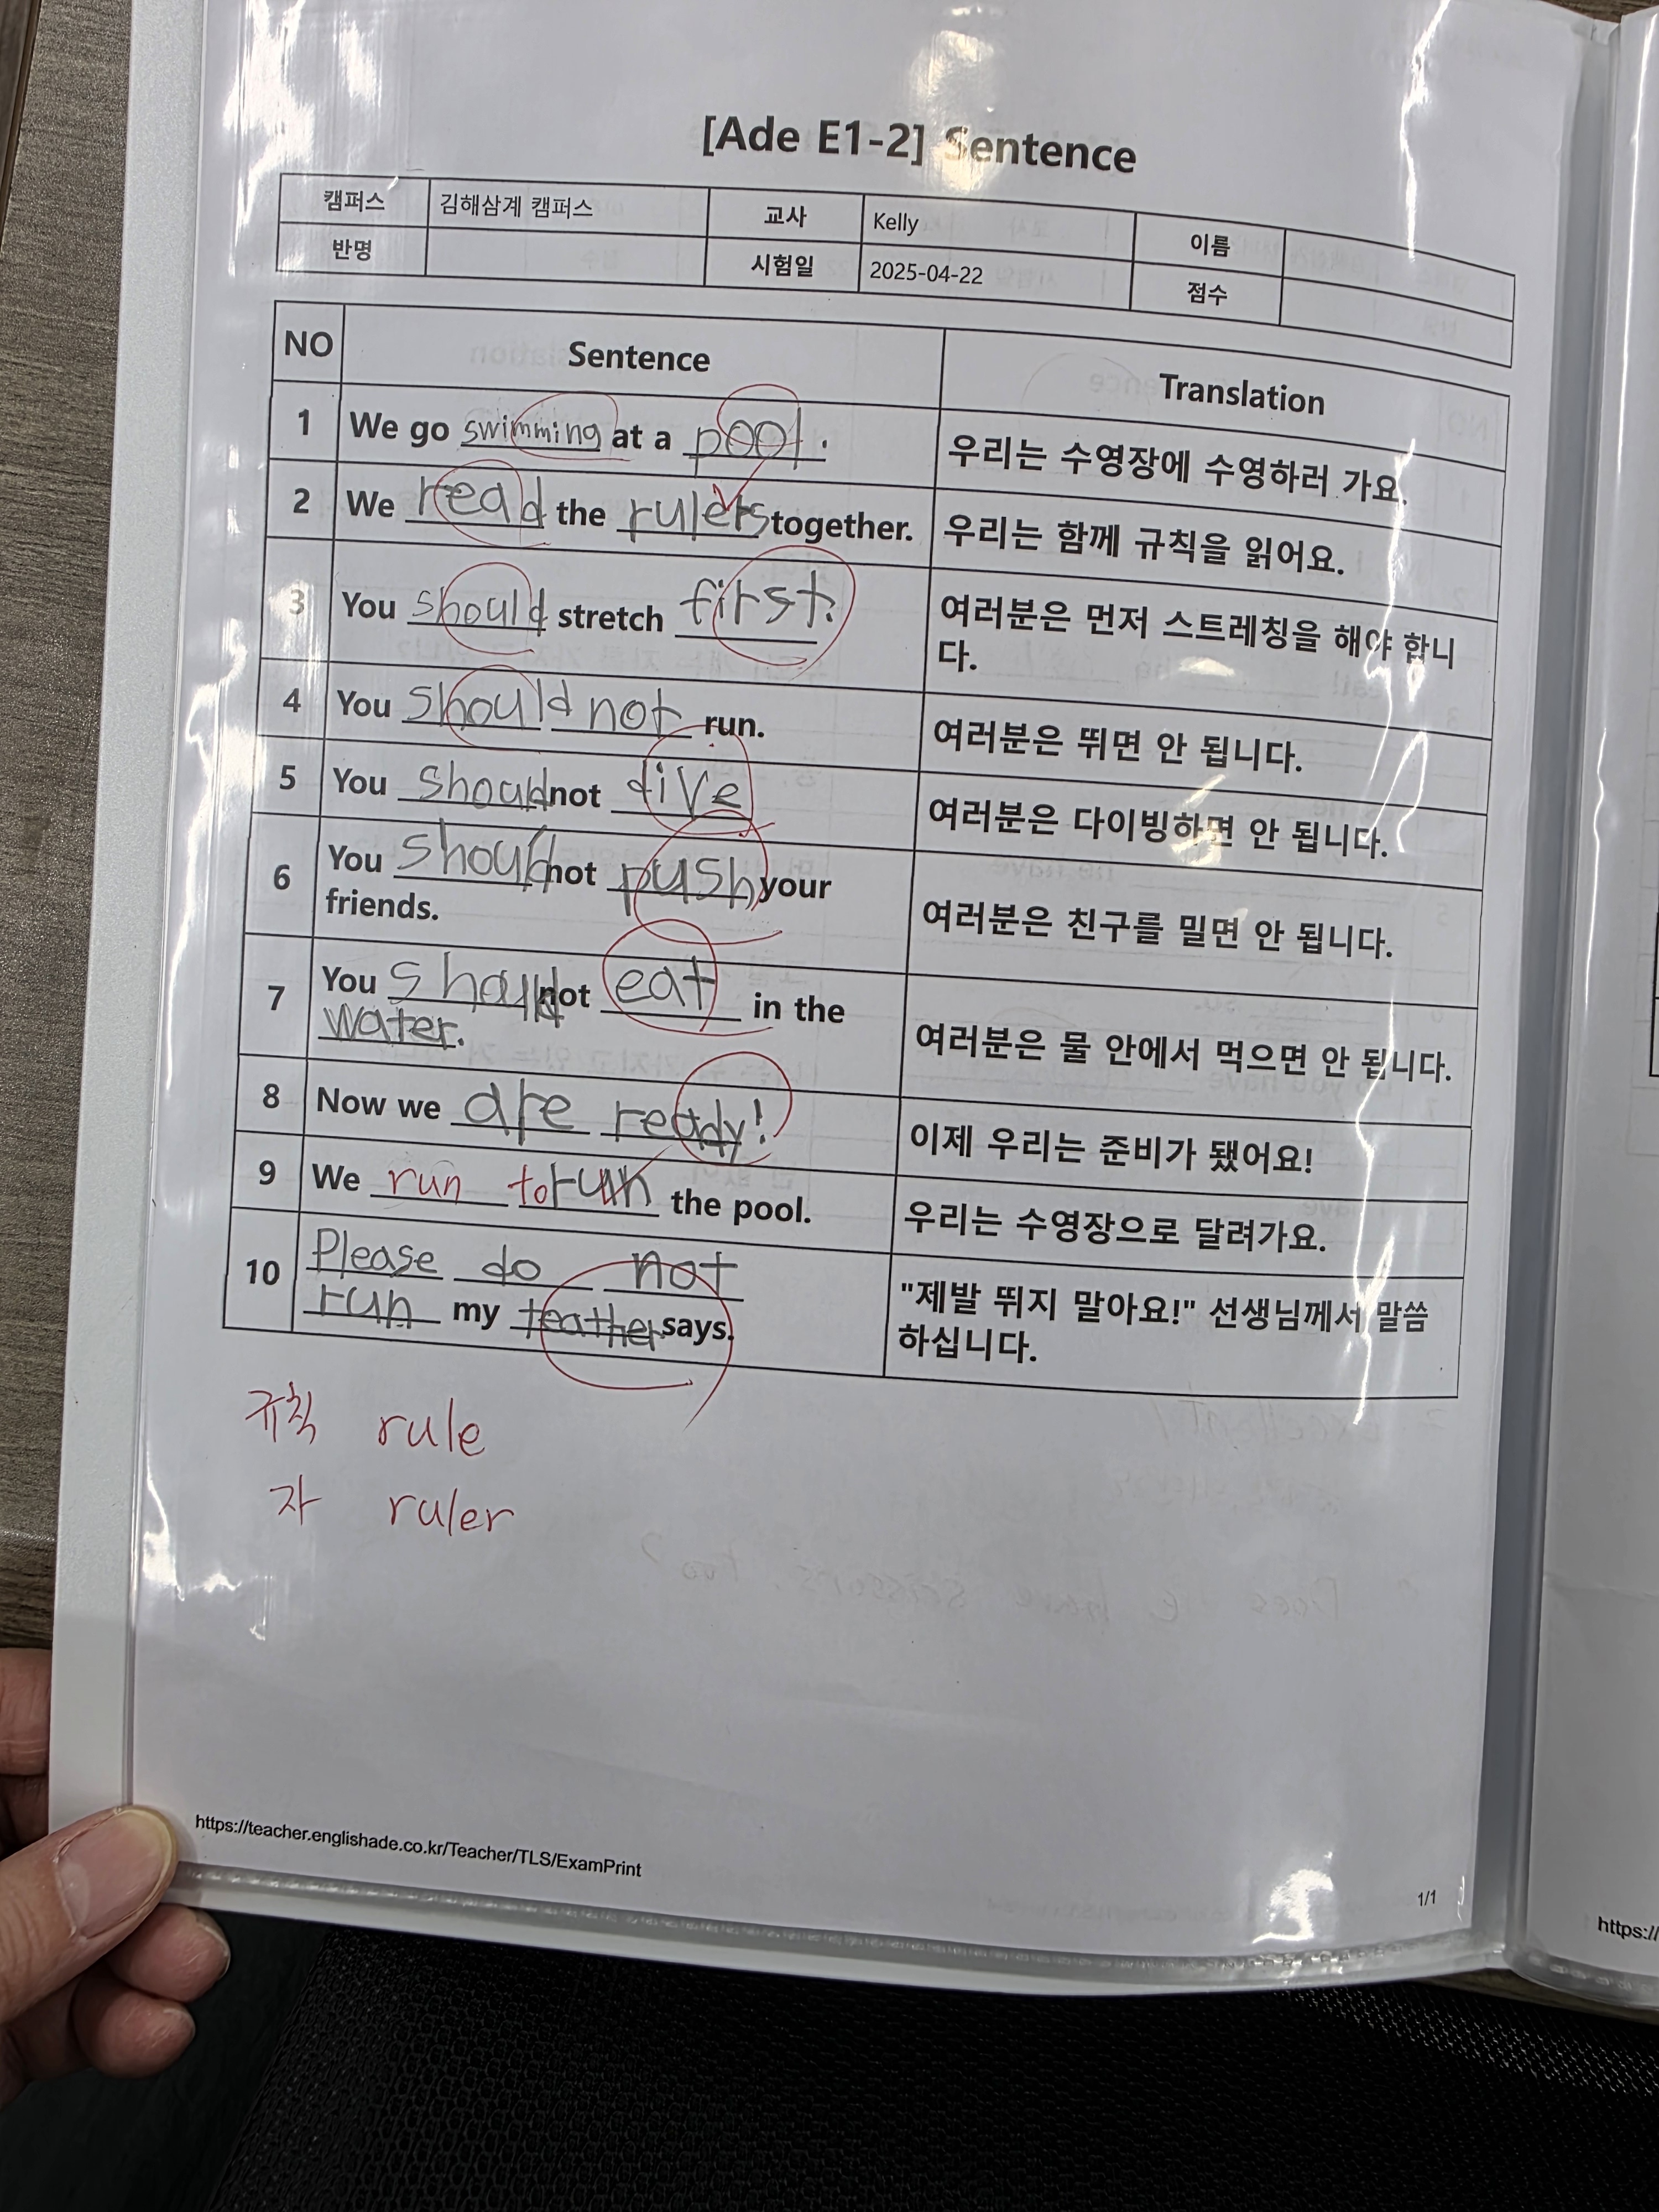 [Ade E1-2] Sentence
캠퍼스 김해삼계 캠퍼스 교사 Kelly 이름
반명 시험일 2025-04-22 점수
NO Sentence Translation
1 We go swimming at a pool. 우리는 수영장에 수영하러 가요.
2 We read the rulers together. 우리는 함께 규칙을 읽어요.
3 You should stretch first. 여러분은 먼저 스트레칭을 해야 합니
다.
4 You should not run. 여러분은 뛰면 안 됩니다.
5 You should not dive 여러분은 다이빙하면 안 됩니다.
6 You should not push your
friends. 여러분은 친구를 밀면 안 됩니다.
7 You should not eat in the
water. 여러분은 물 안에서 먹으면 안 됩니다.
8 Now we are ready! 이제 우리는 준비가 됐어요!
9 We run to run the pool. 우리는 수영장으로 달려가요.
10 Please do not
run my teather says. "제발 뛰지 말아요!" 선생님께서 말씀
하십니다.
규칙 rule
자 ruler
https://teacher.englishade.co.kr/Teacher/TLS/ExamPrint
1/1
https://